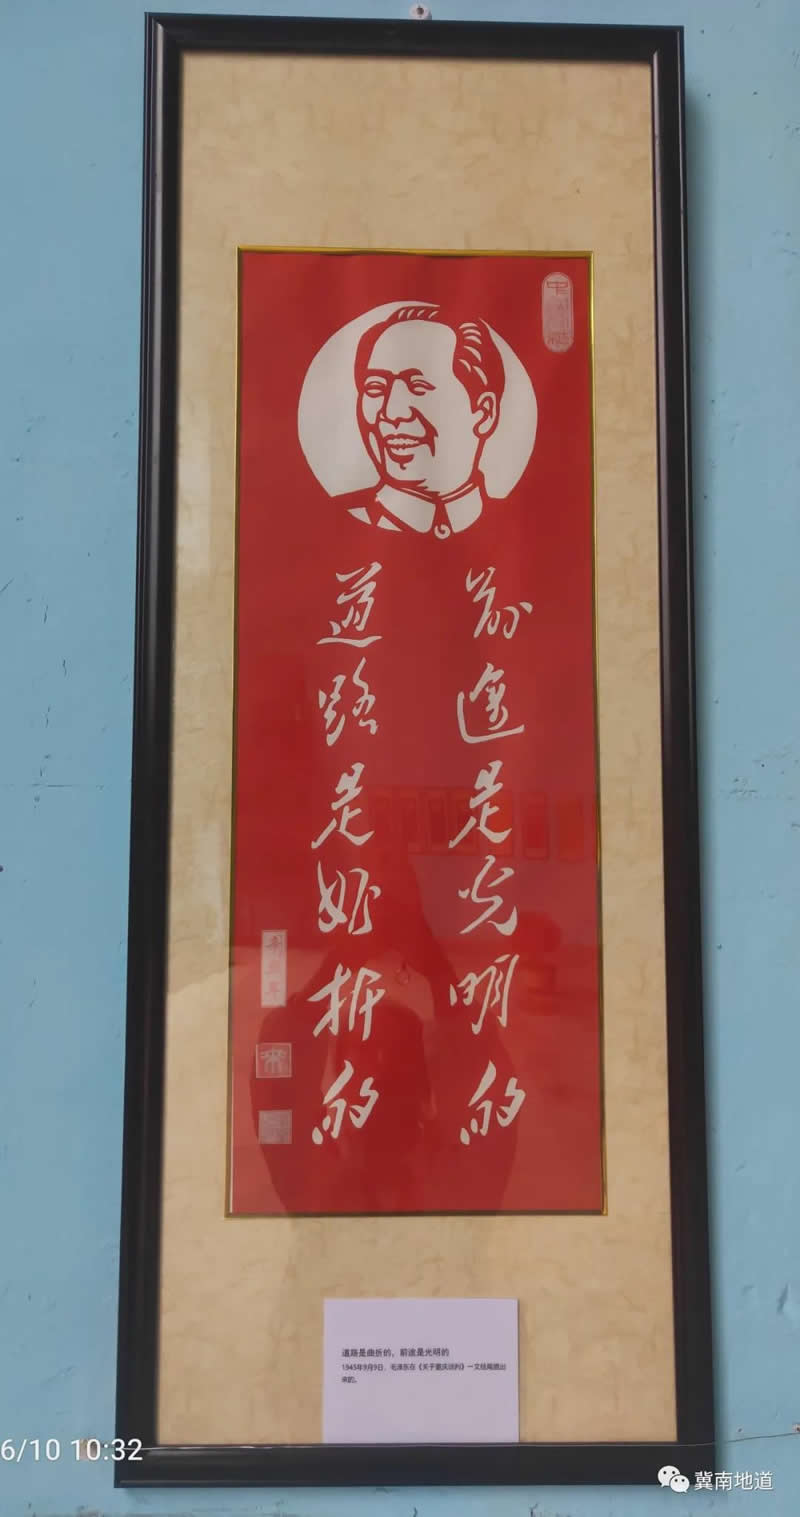 前途是光明的
道路是曲折的
道路是曲折的，前途是光明的
1945年9月9日，毛泽东在《关于重庆谈判》一文结尾提出
来的。
6/10 10:32
冀南地道